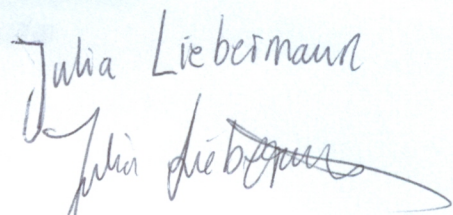 Julia Liebermann
Julia Liebermann